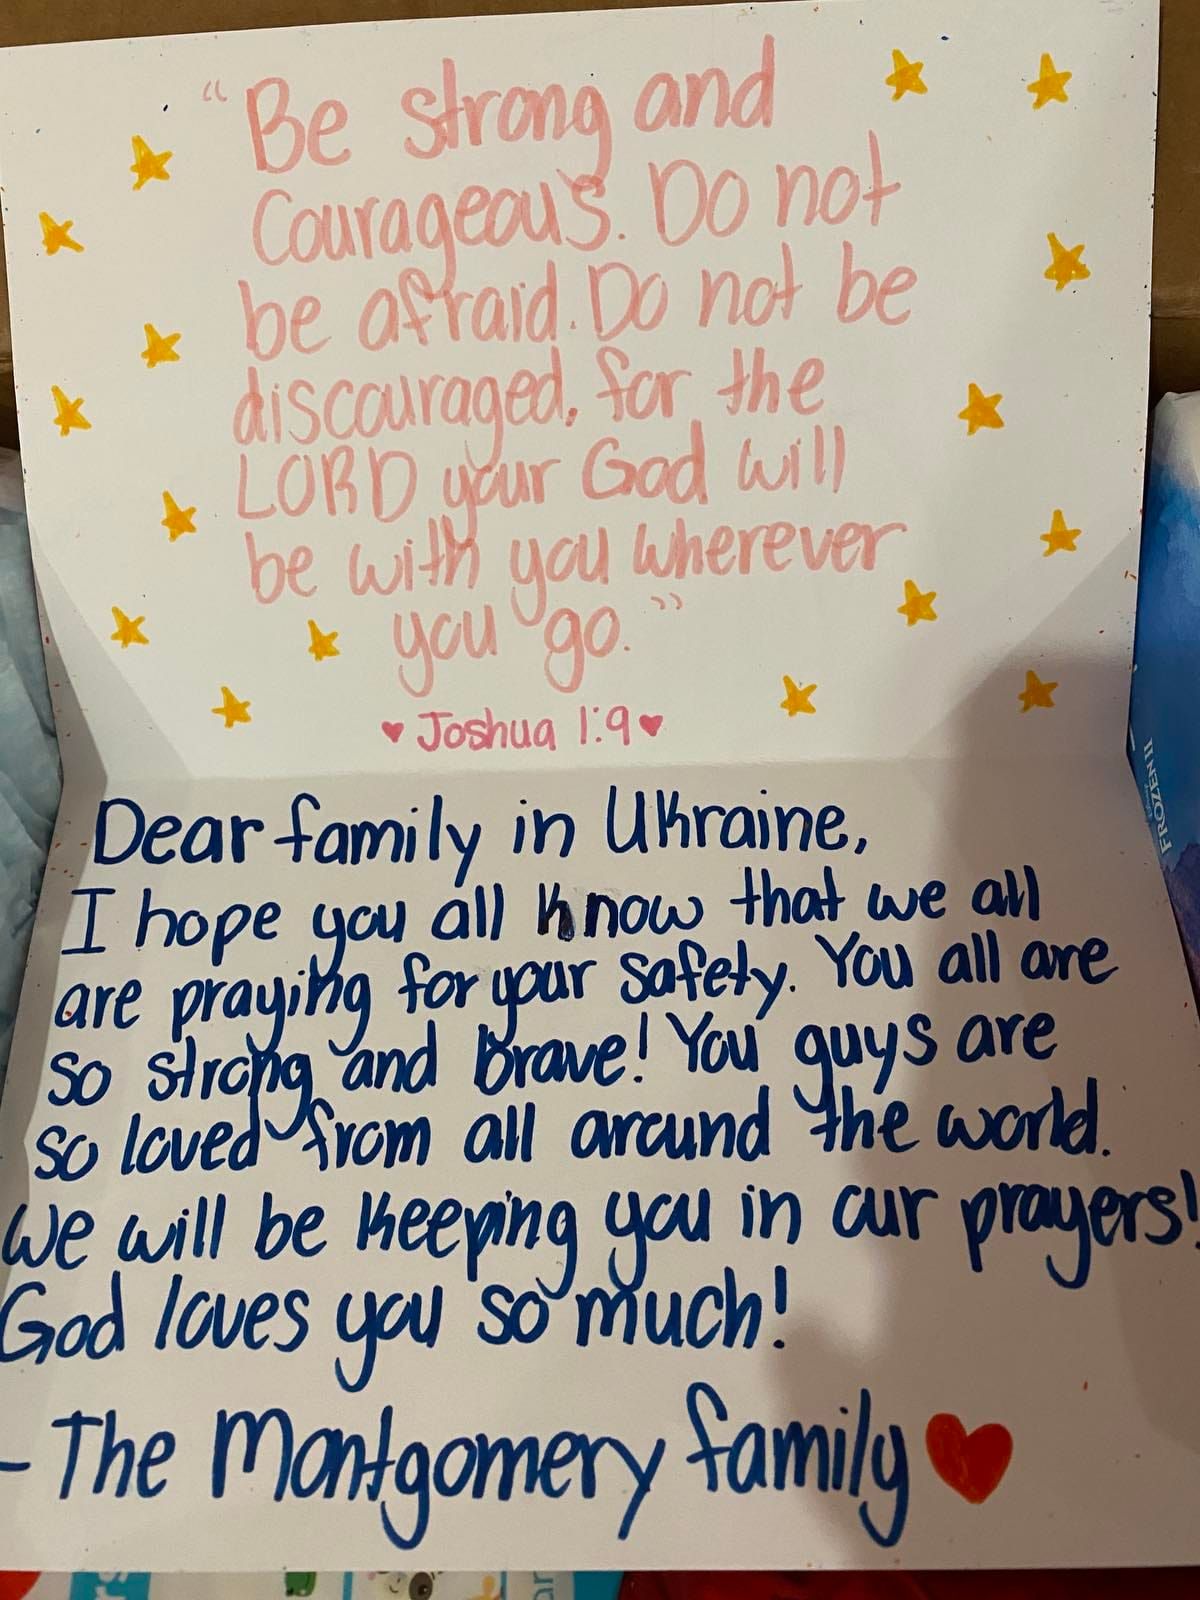 "Be strong and
Courageous. Do not
be afraid. Do not be
discouraged, for the
LORD your God will
be with you wherever
you go."
Joshua 1:9
Dear family in Ukraine,
I hope you all know that we all
are praying for your safety. You all are
so strong and brave! You guys are
so loved from all around the world.
We will be keeping you in our prayers!
God loves you so much!
- The Montgomery family
FROZEN II